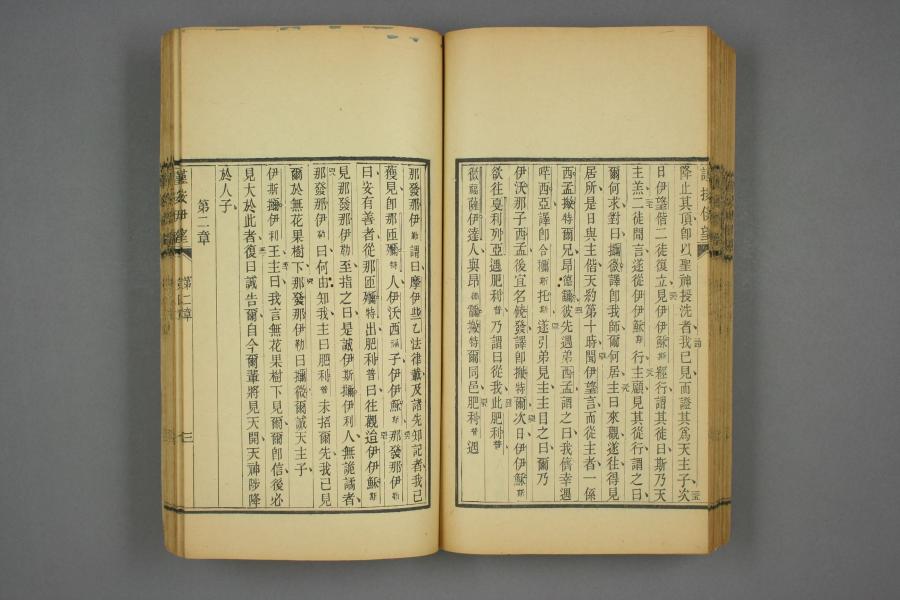 降止其頂卽以聖神授洗者我已見而證其爲天主子次
日伊望偕二徒復立見伊伊穌斯經行謂其徒曰斯乃天
主羔二徒聞言遂從伊伊穌斯行主顧見其從行謂之曰
爾何求對曰攟微譯卽我師爾何居主曰來觀遂往得見
居所是日與主偕天約第十時聞伊望言而從主者一係
西孟撇特爾兄昂德彼先遇弟西孟謂之曰我儕幸遇
哶西亞譯卽合攟斯托斯遂引弟見主主目之曰爾乃
伊沃那子西孟後宜名發譯卽撇特爾次日伊伊穌斯
欲往戛利列亞遇肥利普乃謂曰從我此肥利普
微薩伊達人與昂德撇特爾同邑肥利普遇
那發那伊勒謂曰摩伊些乙法律載及諸先知記者我已
獲見卽那匝特人伊沃西子伊伊穌斯那發那伊勒
曰安有善者從那匝特出肥利普曰往觀迨伊伊穌斯
見那發那伊勒至指之曰是誠伊斯伊利人無詭譎者
那發那伊勒曰何由知我主曰肥利普未招爾先我已見
爾於無花果樹下那發那伊勒曰攟微爾誠天主子
伊斯伊利王主曰我言無花果樹下見爾爾卽信後必
見大於此者復曰誠告爾自今爾輩將見天開天神陟降
於人子
第二章
第二章